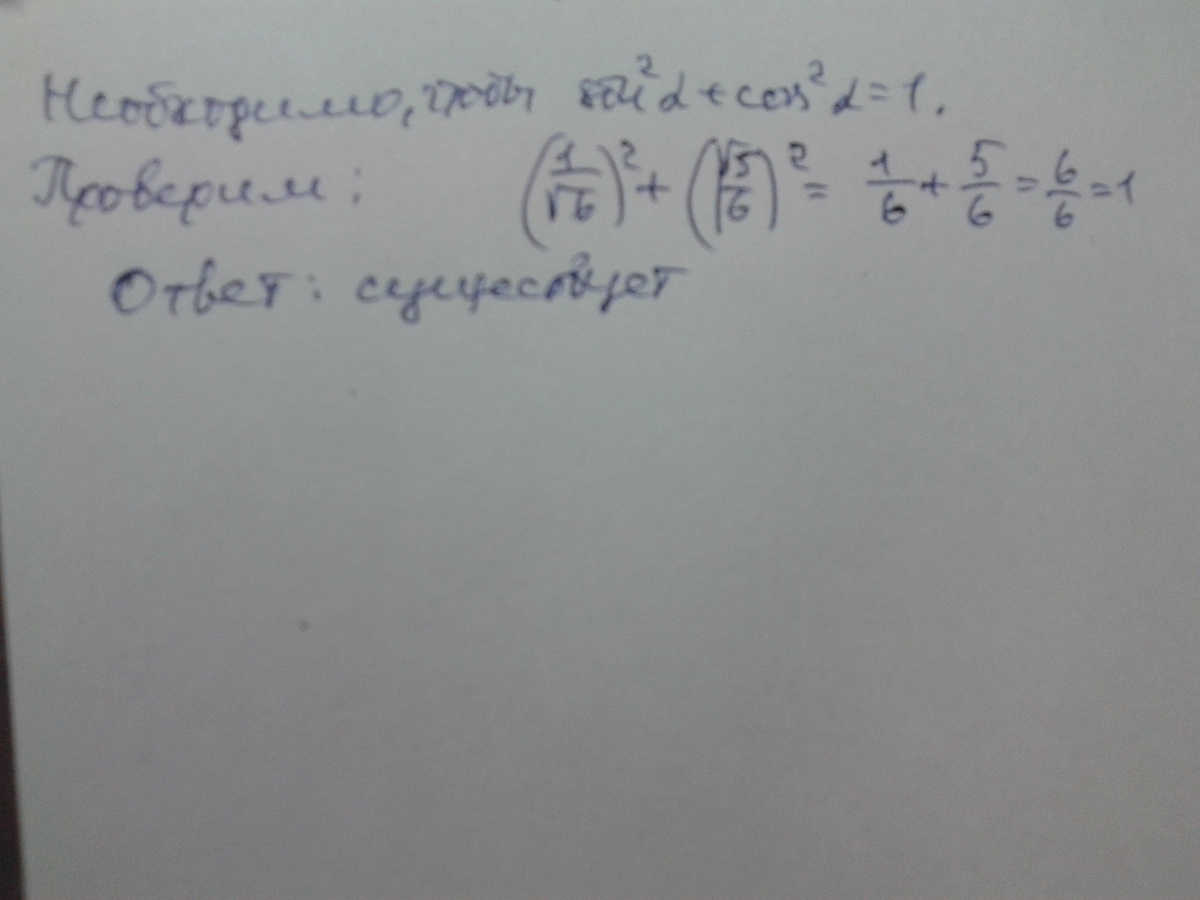 Необходимо, чтобы sin²α + cos²α = 1.
Проверим: (1/√6)² + (√5/6)² = 1/6 + 5/6 = 6/6 = 1
Ответ: существует